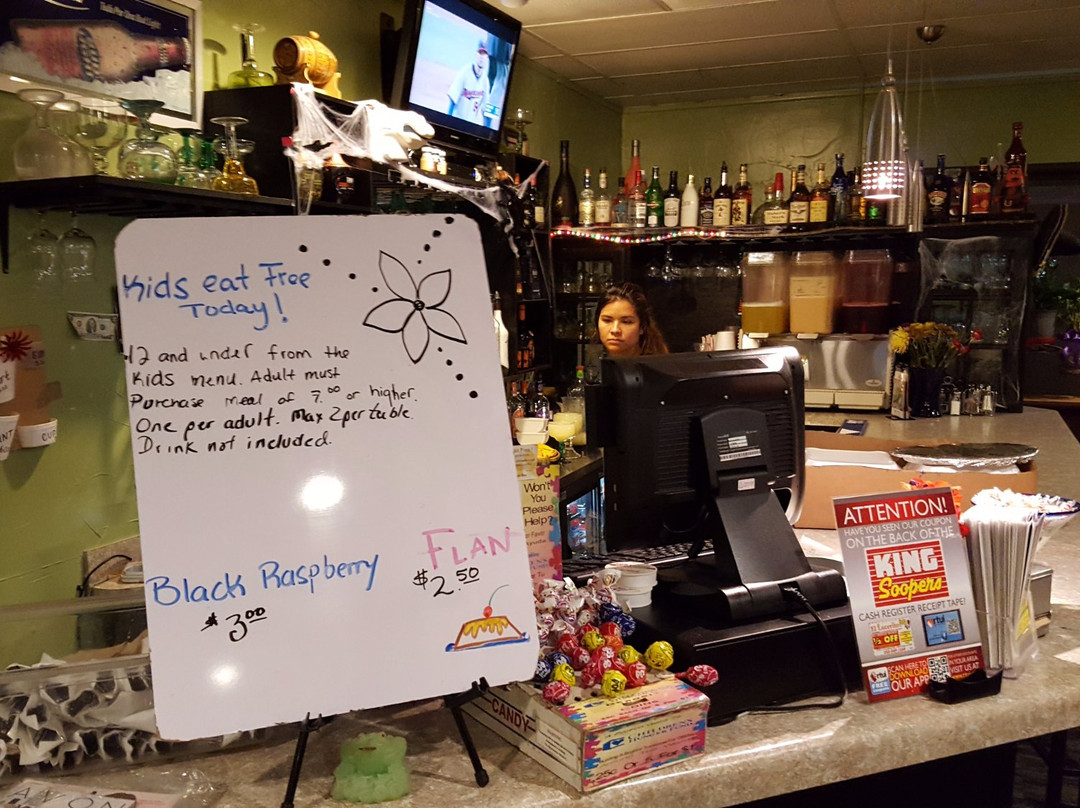 Kids eat Free
Today!
12 and under from the
Kids menu. Adult must
Purchase meal of 7.00 or higher.
One per adult. Max 2 per table.
Drink not included.
Black Raspberry
$3.00
FLAN
$2.50
Won't
You
Please
Help?
CANDY
ATTENTION!
HAVE YOU SEEN OUR COUPON
ON THE BACK OF THE
KING
Soopers
CASH REGISTER RECEIPT TAPE!
1/2 OFF
FREE
SCAN HERE TO
DOWNLOAD
OUR APP
IN YOUR AREA
VISIT US AT